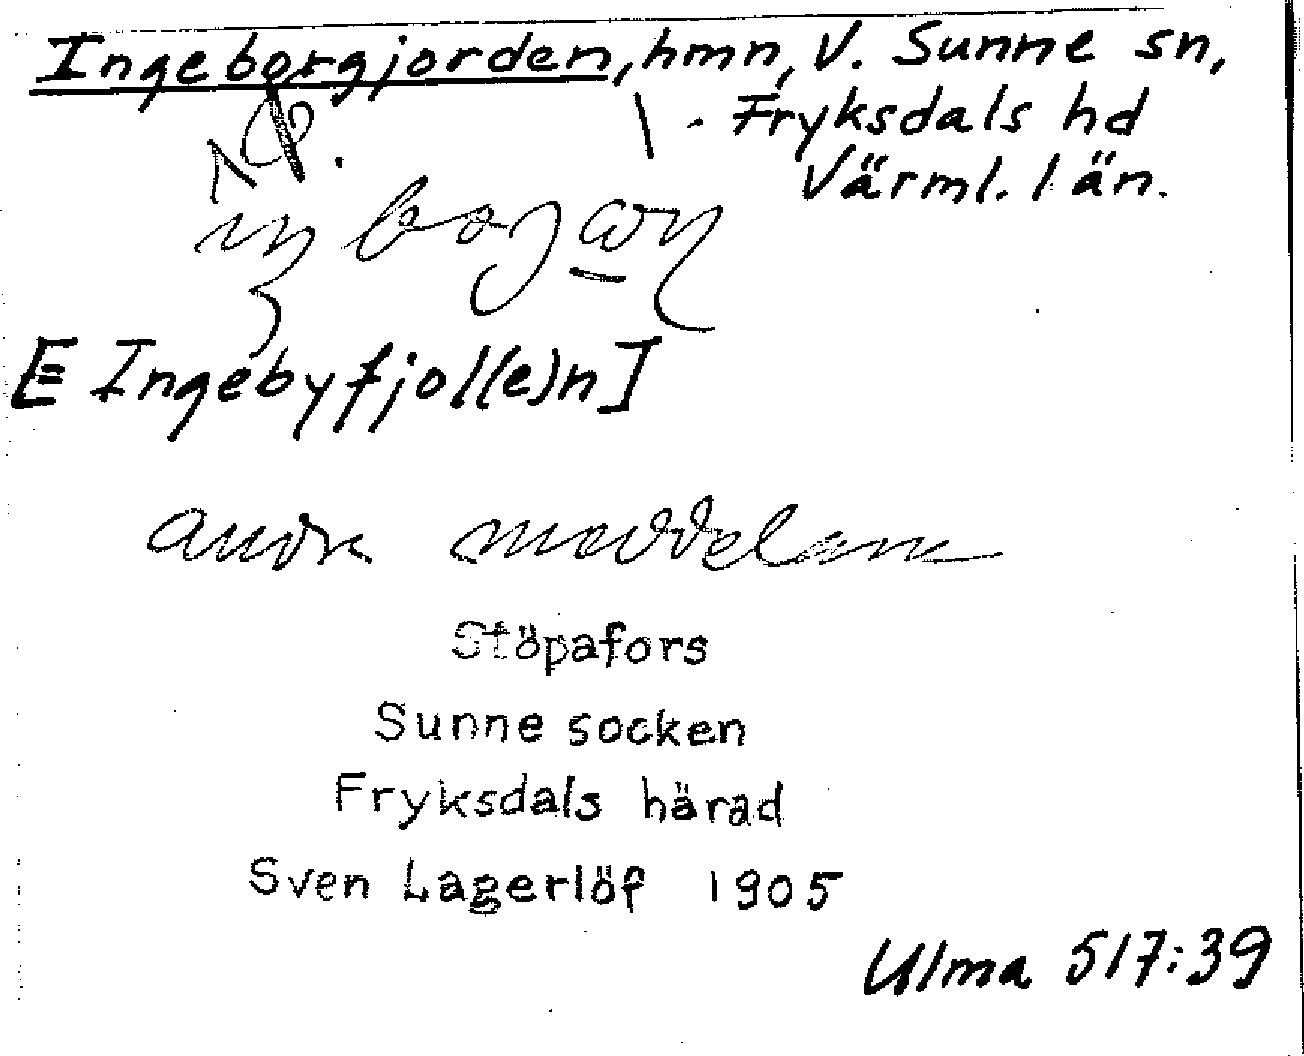 Ingeborgjorden, hmn, V. Sunne sn,
Fryksdals hd
Värml. län.
[E Ingebyfjol(e)n]
andra meddelare
Stöpafors
Sunne socken
Fryksdals härad
Sven Lagerlöf 1905
Ulma 517:39